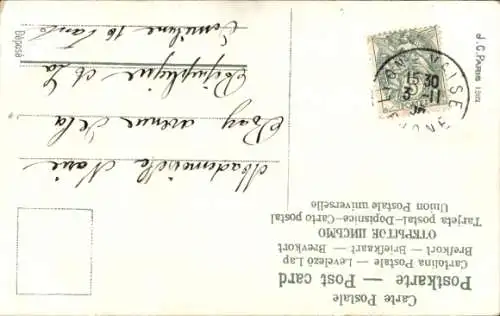 Carte Postale
Postkarte — Post card
Cartolina Postale — Levelező Lap
Brefkort — Briefkaart — Brevkort
ОТКРЫТОЕ ПИСЬМО
Tarjeta postal—Dopisnice—Carto postal
Union Postale universelle
Mademoiselle Marie
Bay avenue de la
République et La
16
Déposé
J.C. PARIS
15 30
3 - 11